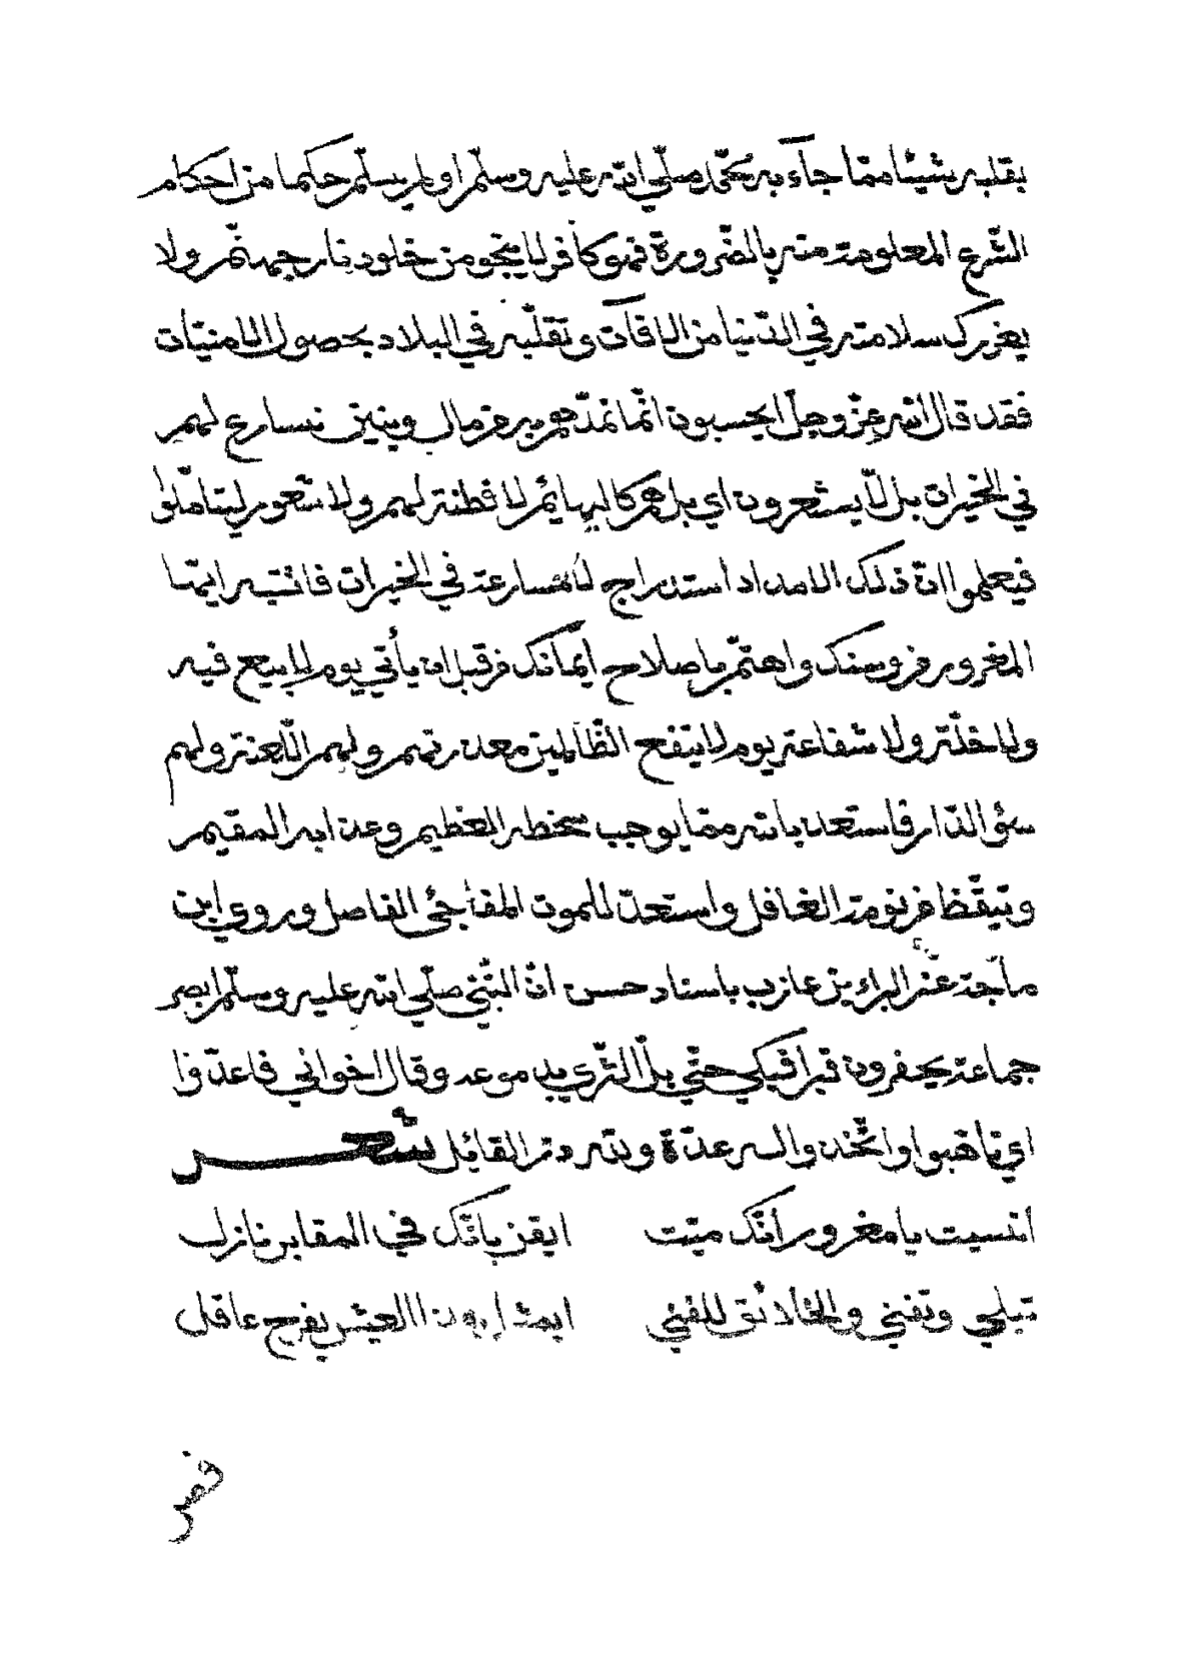 بقلبه شيئا ممّا جآء به محمّد صلّي الله عليه وسلّم او لم يسلّم حكما من احكام
الشّرع المعلومة منه بالضّرورة فهو كافر لا ينجو من خلود نار جهنّم ولا
يغررك سلامته في الدّنيا من الافآت وتقلّبه في البلاد بحصول الامنيّات
فقد قال الله عزّ وجلّ ايحسبون انّما نمدّهم به من مال وبنين نسارع لهم
في الخيرات بل لّا يشعرون اي بل هم كالبهائم لا فطنة لهم ولا شعور ليتامّلوا
فيعلموا انّ ذلك الامداد استدراج لا مسارعة في الخيرات فانتبه ايّها
المغرور من وسنك واهتمّ باصلاح ايمانك من قبل ان يأتي يوم لا بيع فيه
ولا خلّة ولا شفاعة يوم لا ينفع الظّالمين معذرتهم ولهم اللّعنة ولهم
سؤ الدّار فاستعذ بالله ممّا يوجب سخطه العظيم وعذابه المقيم
وتيقّظ من نومة الغافل واستعدّ للموت المفاجئ الفاصل وروي ابن
ماجة عن البراء بن عازب باسناد حسن انّ النّبيّ صلّي الله عليه وسلّم ابصر
جماعة يحفرون قبرا فبكي حتّي بلّ الثّري بدموعه وقال اخواني فاعدّوا
اي تاهّبوا واتّخذوا له عدّة ولله درّ القائل شعر
انسيت يا مغرور أنّك ميّت ايقن بانّك في المقابر نازل
تبلي وتفني والخلائق للفني ابمثل هذا العيش يفرح عاقل